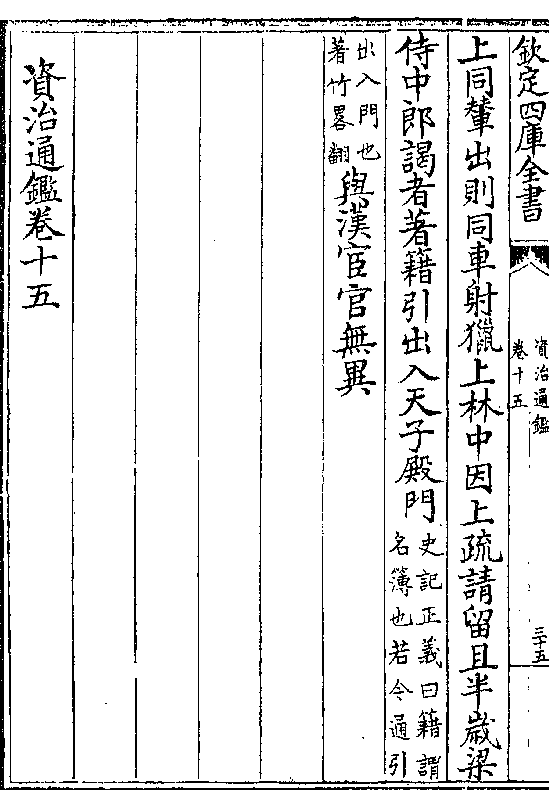 欽定四庫全書
資治通鑑
卷十五
三十五
上同輦出則同車射獵上林中因上疏請留且半歲梁
侍中郎謁者著籍引出入天子殿門
史記正義曰籍謂
名簿也若今通引
出入門也
著竹畧翻
與漢宦官無異
資治通鑑卷十五